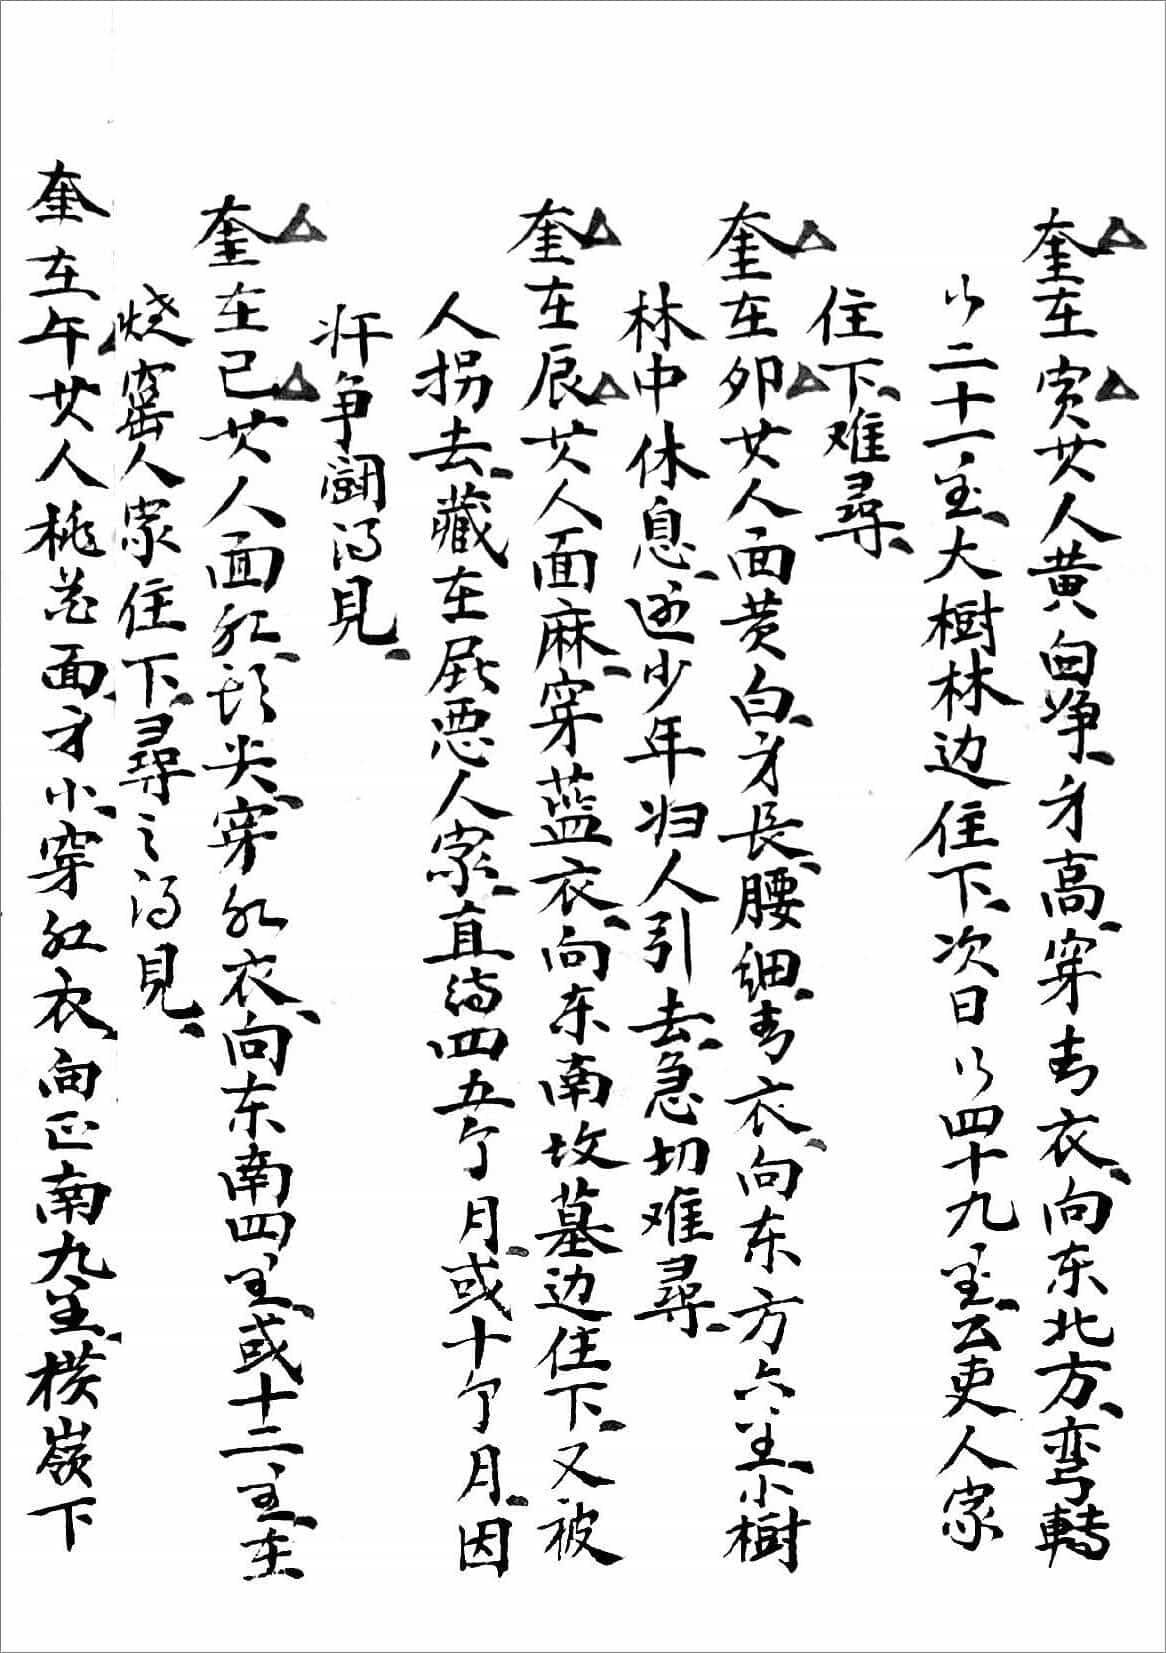 奎在寅其人黄白净、身高、穿青衣、向东北方、弯轉
行二十一里、大樹林边住下、次日行四十九里、公吏人家
住下、难尋、
奎在卯其人面黄白、身長、腰细、青衣、向东方六里、小樹
林中休息、逢少年妇人引去、急切难尋、
奎在辰其人面麻、穿蓝衣、向东南坟墓边住下、又被
人拐去、藏在屁恶人家、直待四五个月、或十个月、因
奸争闘得見、
奎在巳其人面红、頭尖、穿红衣、向东南四里、或十二里、在
烧窰人家住下、尋之得見、
奎在午其人桃花面、身小、穿红衣、向正南九里、横嶺下